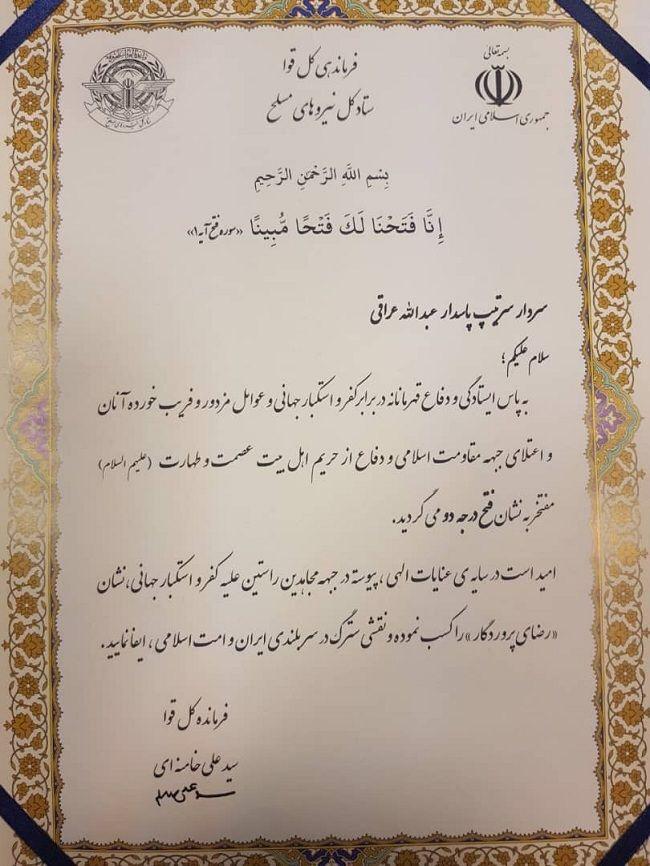 بسمه تعالی
جمهوری اسلامی ایران
فرماندهی کل قوا
ستاد کل نیروهای مسلح
بِسْمِ اللَّهِ الرَّحْمَٰنِ الرَّحِيمِ
إِنَّا فَتَحْنَا لَكَ فَتْحًا مُّبِينًا «سوره فتح آیه ۱»
سردار سرتیپ پاسدار عبدالله عراقی
سلام علیکم؛
به پاس ایستادگی و دفاع قهرمانانه در برابر کفر و استکبار جهانی و عوامل مزدور و فریب خورده آنان
و اعتلای جبهه مقاومت اسلامی و دفاع از حریم اهل بیت عصمت و طهارت (علیهم السلام)
مفتخر به نشان فتح درجه دو می گردید.
امید است در سایه ی عنایات الهی، پیوسته در جبهه مجاهدین راستین علیه کفر و استکبار جهانی، نشان
«رضای پروردگار» را کسب نموده و نقشی سترگ در سربلندی ایران و امت اسلامی، ایفا نمایید.
فرمانده کل قوا
سید علی خامنه ای